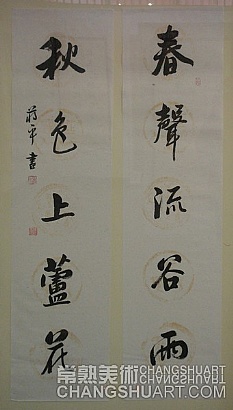 春聲流谷雨
秋色上蘆花
蒋平書
常熟美術CHANGSHUART
CHANGSHUART.COM